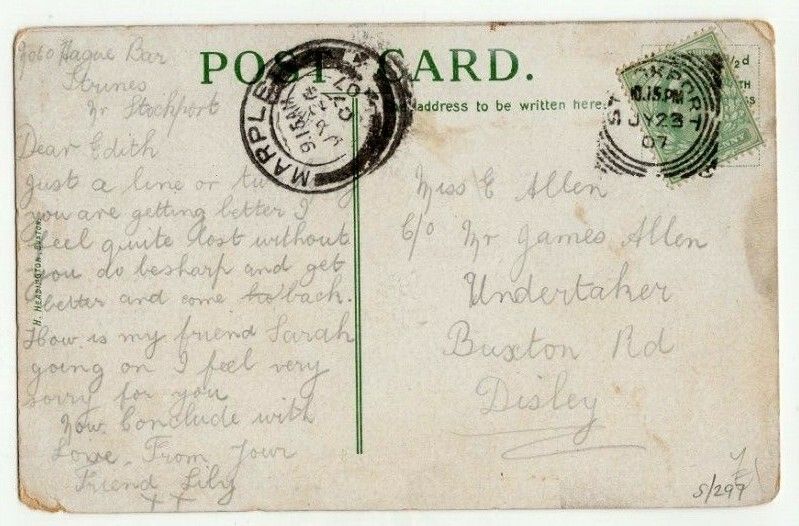 Hague Bar
Strines
Nr Stockport
Dear Edith
Just a line or
you are getting better I
feel quite lost without
you do besharp and get
better and come to back.
How is my friend Sarah
going on I feel very
sorry for you
Now Conclude with
Love From Your
Friend Lily
X X
H. HEADINGTON, BUXTON
POST CARD.
address to be written here.
½d
MARPLE
9.15AM
JY 24
07
STOCKPORT
10.15.PM
JY 23
07
Miss E Allen
C/o Mr James Allen
Undertaker
Buxton Rd
Disley
S/297